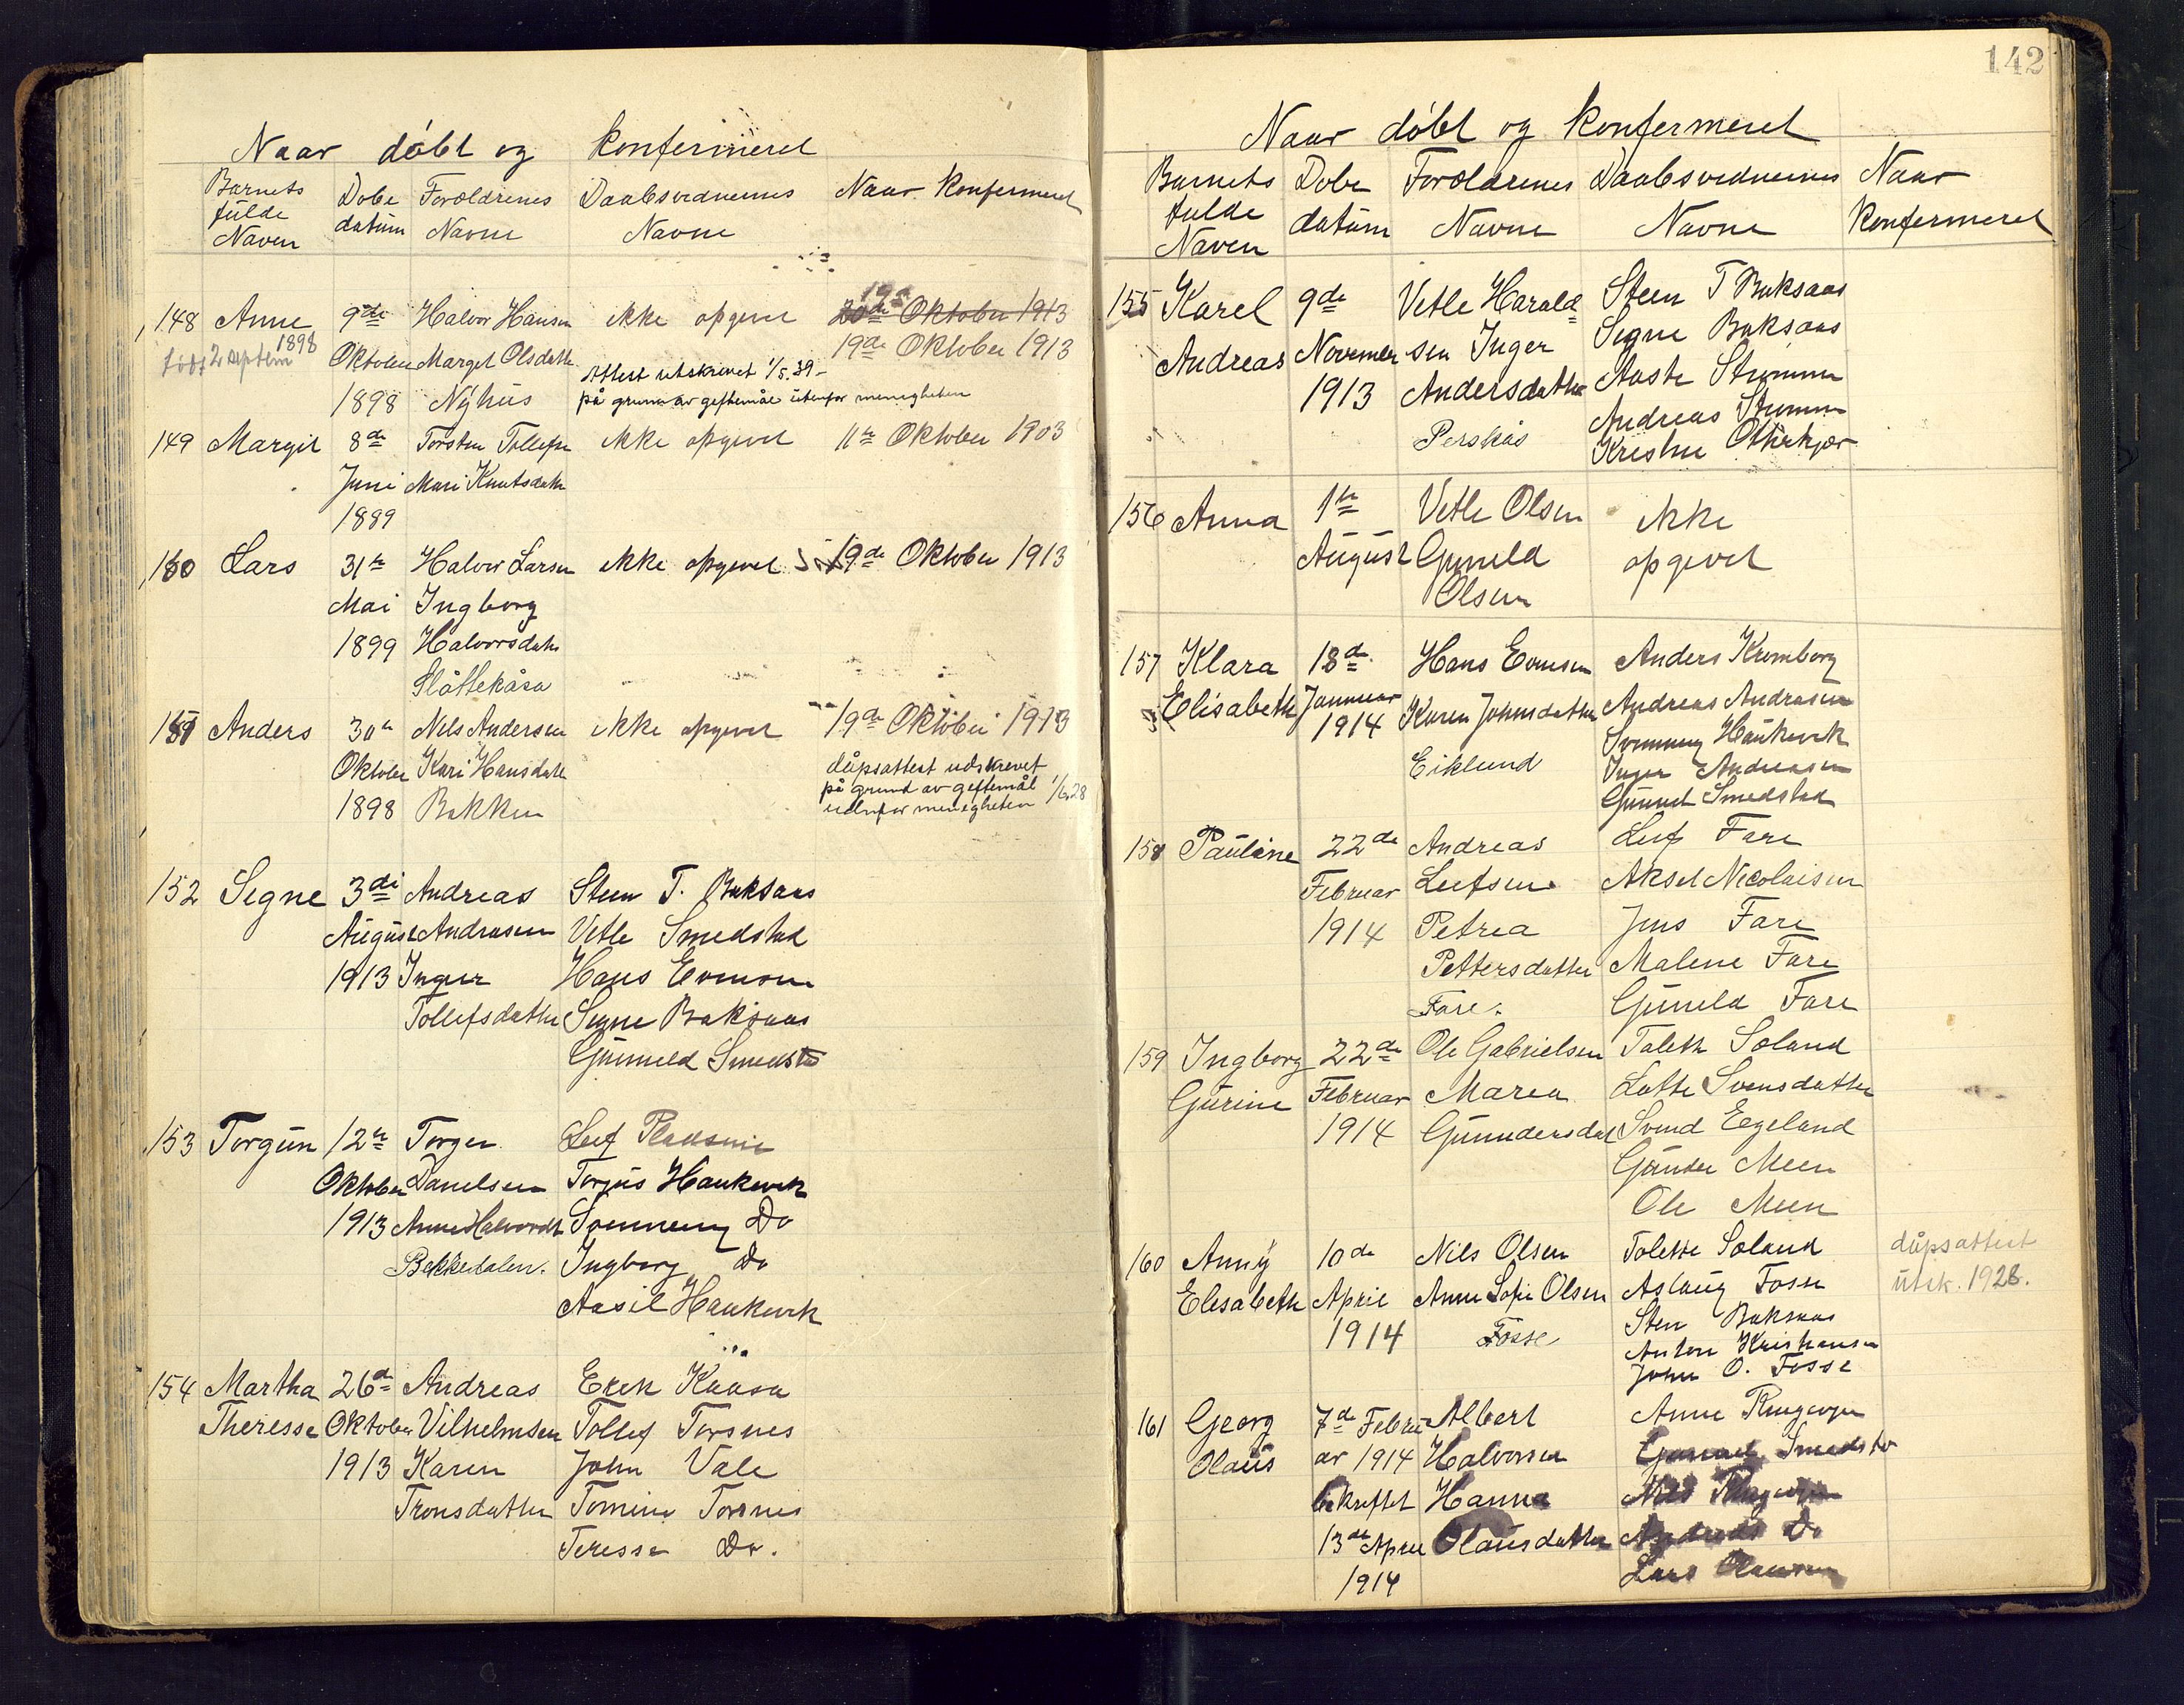 Naar döbt og konfermeret
Barnets fulde Naven
Dobe datum
Forældrenes Navne
Daabsvednernes Navne
Naar konfermeret
148 Anne født 2 septbm 1898
9de Oktober 1898
Halvor Hansen Marget Olsdatter Nyhus
ikke opgevet
Attest utskrevet 1/5.39-
på grunn av geftemål utenfor menegheten
20de Oktober 1913
19de Oktober 1913
149 Margit
8de Juni 1899
Torsten Tollefsn Mari Knutsdatr
ikke opgevet
11te Oktober 1903
150 Lars
31te Mai 1899
Halvor Larsen Ingborg Halvorsdatr Slåttekåsa
ikke opgevet
19de Oktober 1913
151 Anders
30te Oktober 1898
Nils Andersen Kari Hansdatr Bakken
ikke opgevet
19de Oktober 1913
dåpsattest udskrevet
på grund av geftemål 1/6.28
udenfor menegheten
152 Segne
3di August 1913
Andreas Andrasen Inger Tollefsdatter
Steen T. Buksaas
Vetle Smedstad
Hans Evenson
Segne Baksaas
Gunneld Smedst
153 Torgun
12te Oktober 1913
Torger Danelsen Anne Halvordt Bekkedalen.
Leif
Torjus Haukevek
Svennung Do
Ingborg Do
Aasil Haukevek
154 Martha Theresse
26de Oktober 1913
Andreas Vilhelmsen Karen Tronsdatter
Erek Kaasa
Tollef Torsnes
John Vale
Tomine Torsnes
Teresse Do.
142
Naar döbt og konfermeret
Barnets fulde Naven
Dobe datum
Forældrenes Navne
Daabsvednernes Navne
Naar konfermeret
155 Karel Andreas
9de November 1913
Vetle Haraldsen Inger Andersdatter Perskås
Steen T Buksaas
Segne Baksaas
Aaste Strømmen
Andreas Strømmen
Kristine Otterkjær
156 Anna
1te August
Vetle Olsen Guneld Olsen
ikke opgevet
157 Klara Elisabeth
18de Januar 1914
Hans Evensen Karen Johnsdatter Eiklund
Anders Kromborg
Andreas Andrasen
Svennung Haukevek
Inger Andreasen
Gunnel Smedstad
158 Pauline
22de Februar 1914
Andreas Leefsen Petrea Pettersdatter Fare.
Leif Fare
Aksel Nicolaisen
Jens Fare
Malene Fare
Guneld Fare
159 Ingborg Gurine
22de Februar 1914
Ole Gabrielsen Marea Gunnders dat
Taleth Soland
Lotte Svensdatter
Svend Eegeland
Gunder Meen
Ole Meen
160 Anny Elesabeth
10de April 1914
Nils Olsen Anne Sofie Olsen Fosse
Tolette Soland
Aslaug Fosse
Sten Baksaas
Anton Kristiansen
John O. Fosse
dåpsattest
utsk. 1928.
161 Georg Olaus
7de Februar 1914 bekreftet 13de April 1914
Albert Halvorsen Hanna Olausdatter
Anne
Smedstd
Nils
Do
Lars Olausen